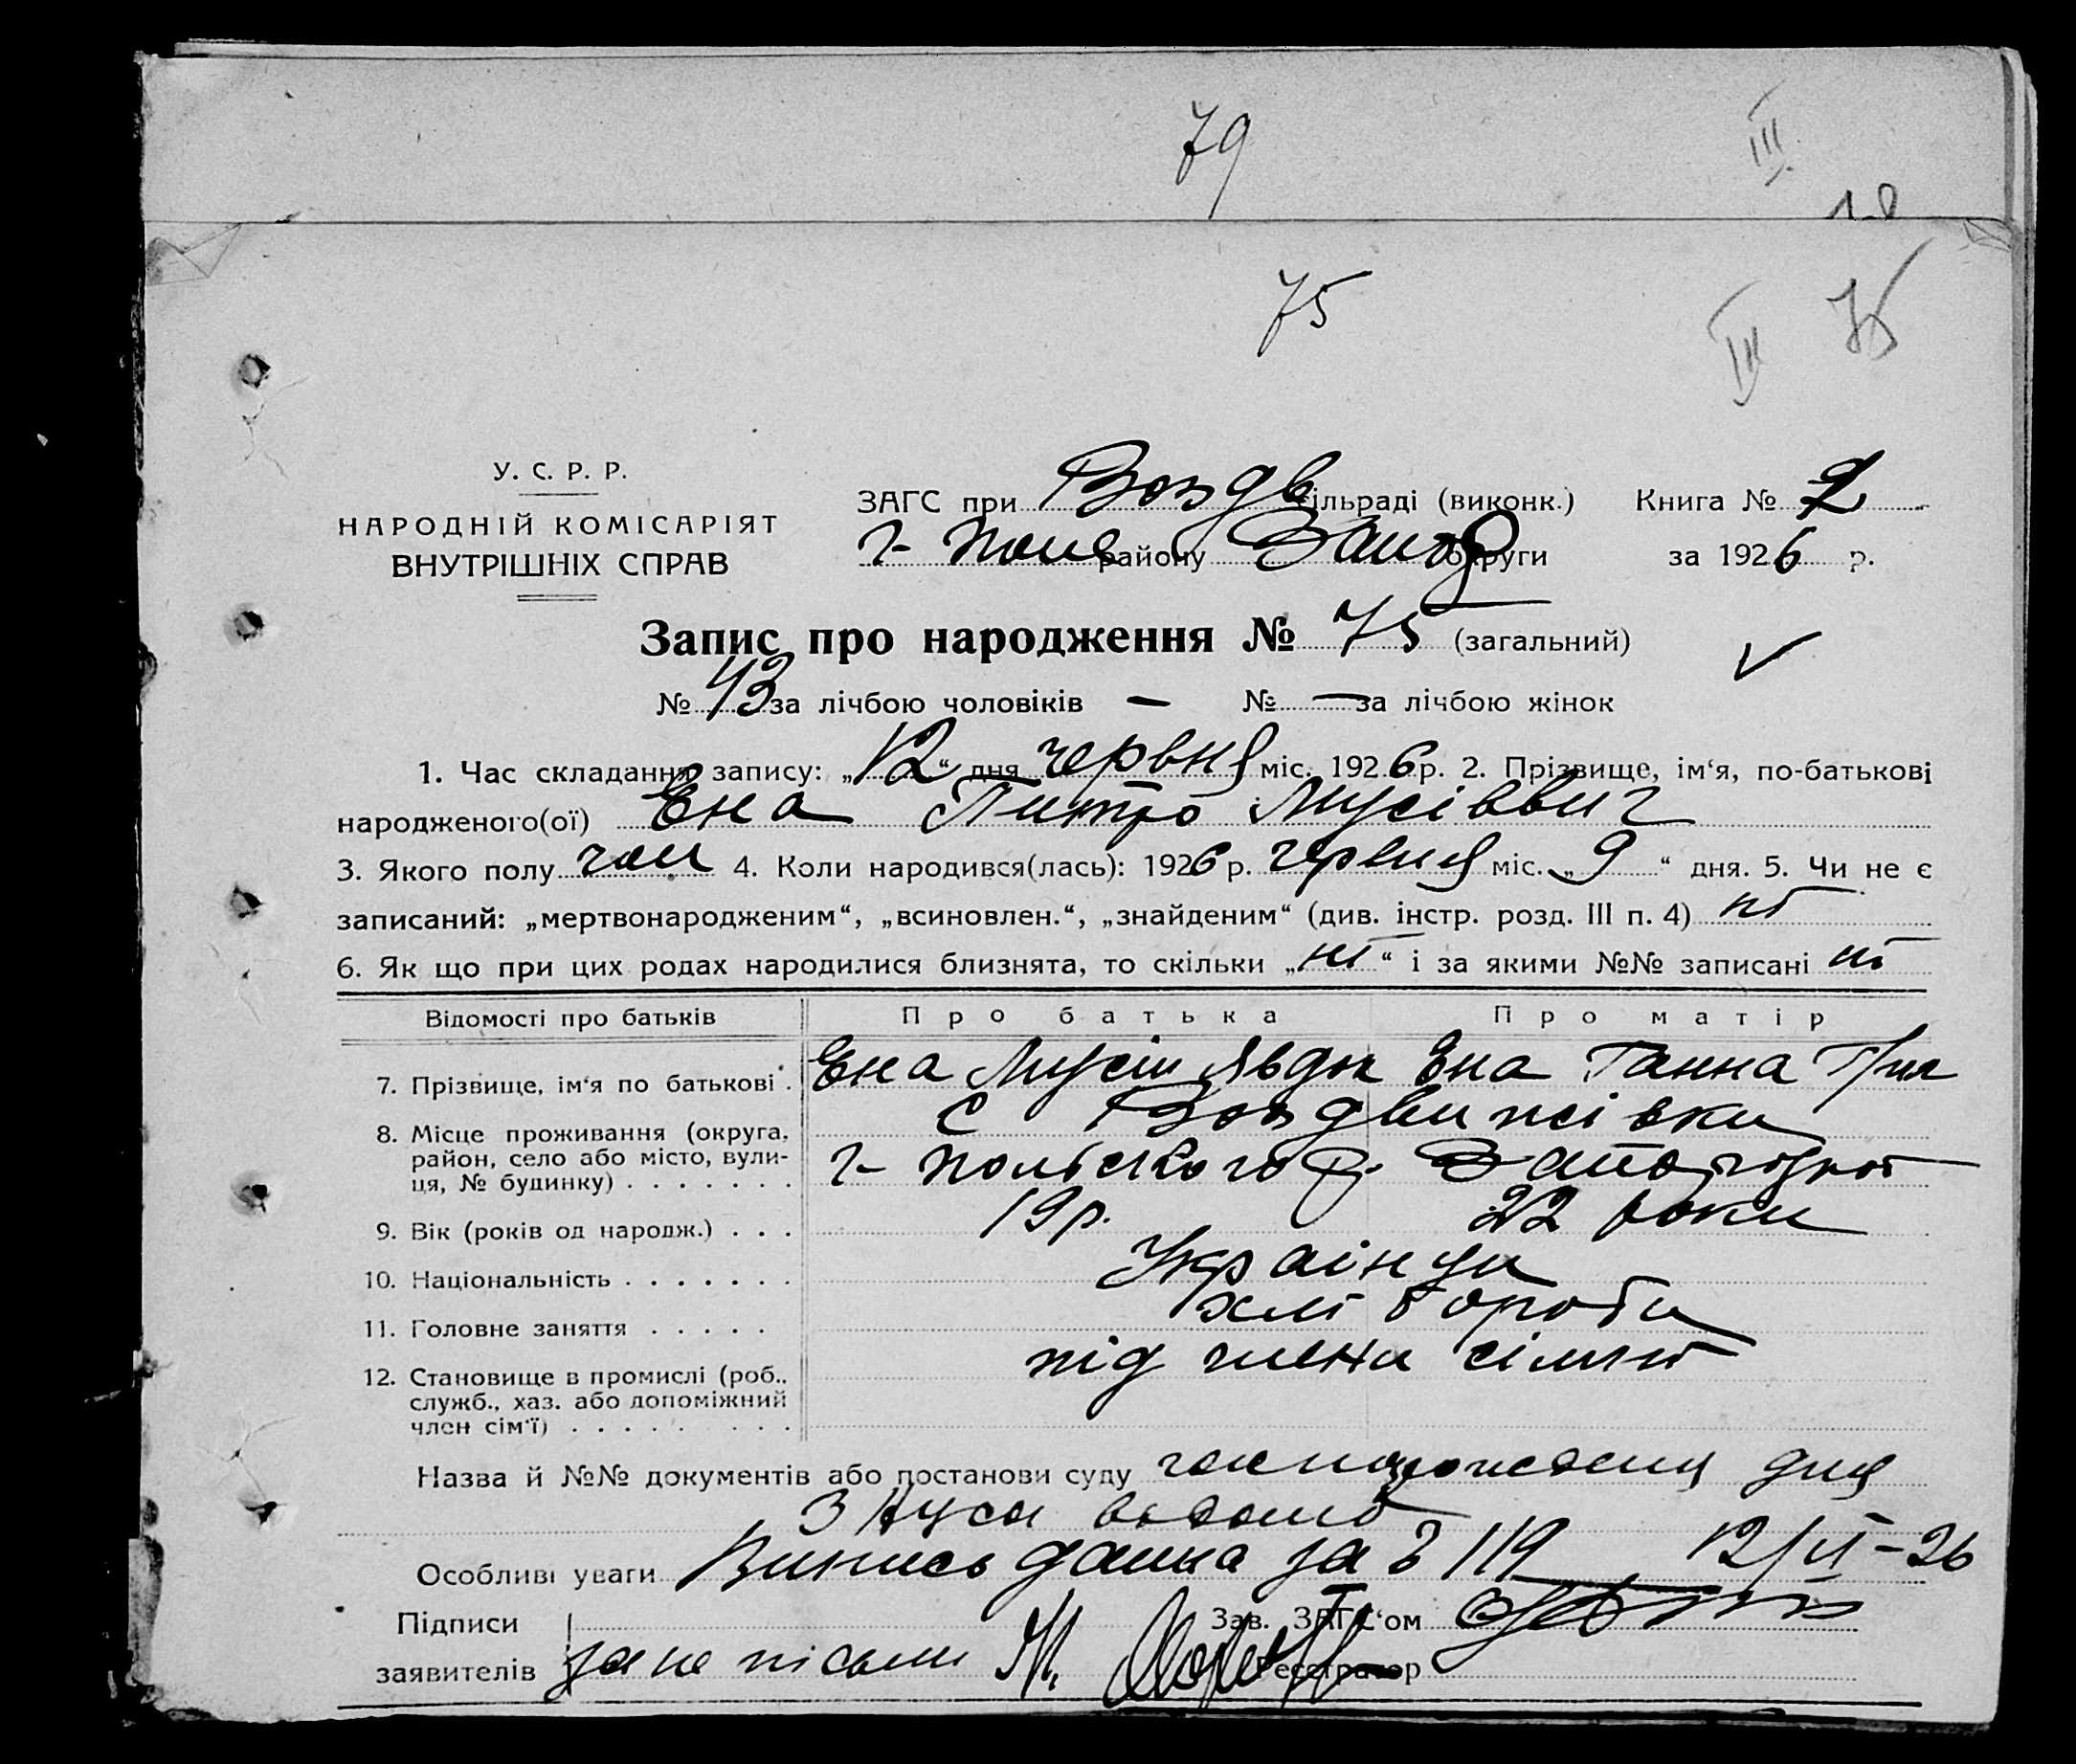 79
III
75
III 75
У. С. Р. Р.
НАРОДНІЙ КОМІСАРІЯТ
ВНУТРІШНІХ СПРАВ
ЗАГС при Воздв сільраді (виконк.) Книга № 2
г- поль району Запор округи за 1926 р.
Запис про народження № 75 (загальний)
№ 43 за лічбою чоловіків — № — за лічбою жінок
1. Час складання запису: „12“ дня червня міс. 1926 р. 2. Прізвище, ім‘я, по-батькові
народженого(ої) Ена Питро Мусіввич
3. Якого полу чол 4. Коли народився(лась): 1926 р. червня міс. „9“ дня. 5. Чи не є
записаний: „мертвонародженим“, „всиновлен.“, „знайденим“ (див. інстр. розд. III п. 4) ні
6. Як що при цих родах народилися близнята, то скільки „ні“ і за якими №№ записані ні
Відомості про батьків Про батька Про матір
7. Прізвище, ім‘я по батькові . Ена Мусій Явдок Ена Ганна Грил
8. Місце проживання (округа, с Воздвижівки
район, село або місто, вули- г- польского р. Запорізкої
ця, № будинку) . . . . . . .
9. Вік (років од народж.) . . . 19 р. 22 роки
10. Національність . . . . . . . Українци
11. Головне заняття . . . . . хлібороби
12. Становище в промислі (роб., під члени сімні
служб., хаз. або допоміжний
член сім‘ї) . . . . . . . .
Назва й №№ документів або постанови суду
Особливі уваги Випись данна за № 119 12/VI-26
Підписи Зав. ЗАГС‘ом
заявителів за не пісьми М. Реєстратор